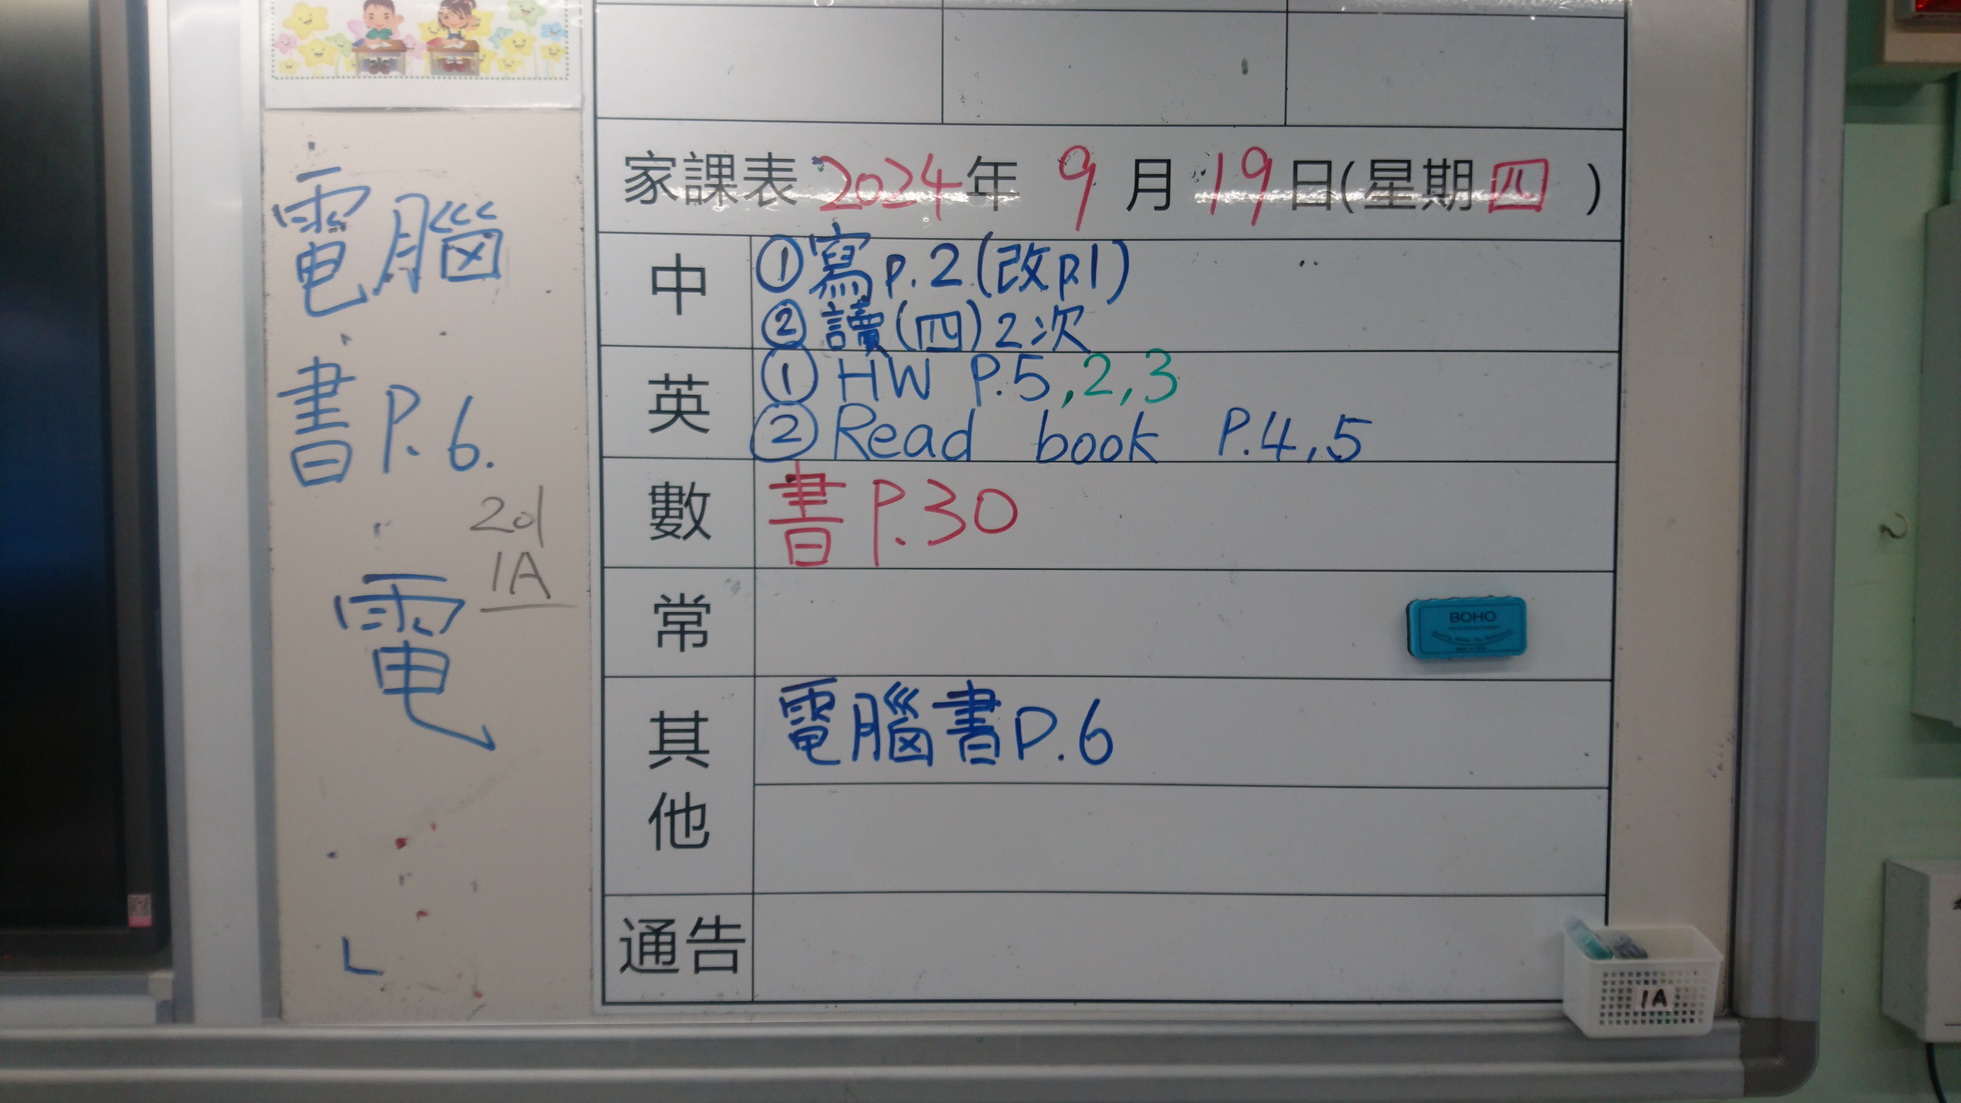 電腦
書P.6.
201
1A
電
家課表 2024年 9月19日(星期四)
中
①寫p.2(改p.1)
②讀(四)2次
英
① HW P.5,2,3
② Read book P.4,5
數
書P.30
常
BOHO
其他
電腦書P.6
通告
1A